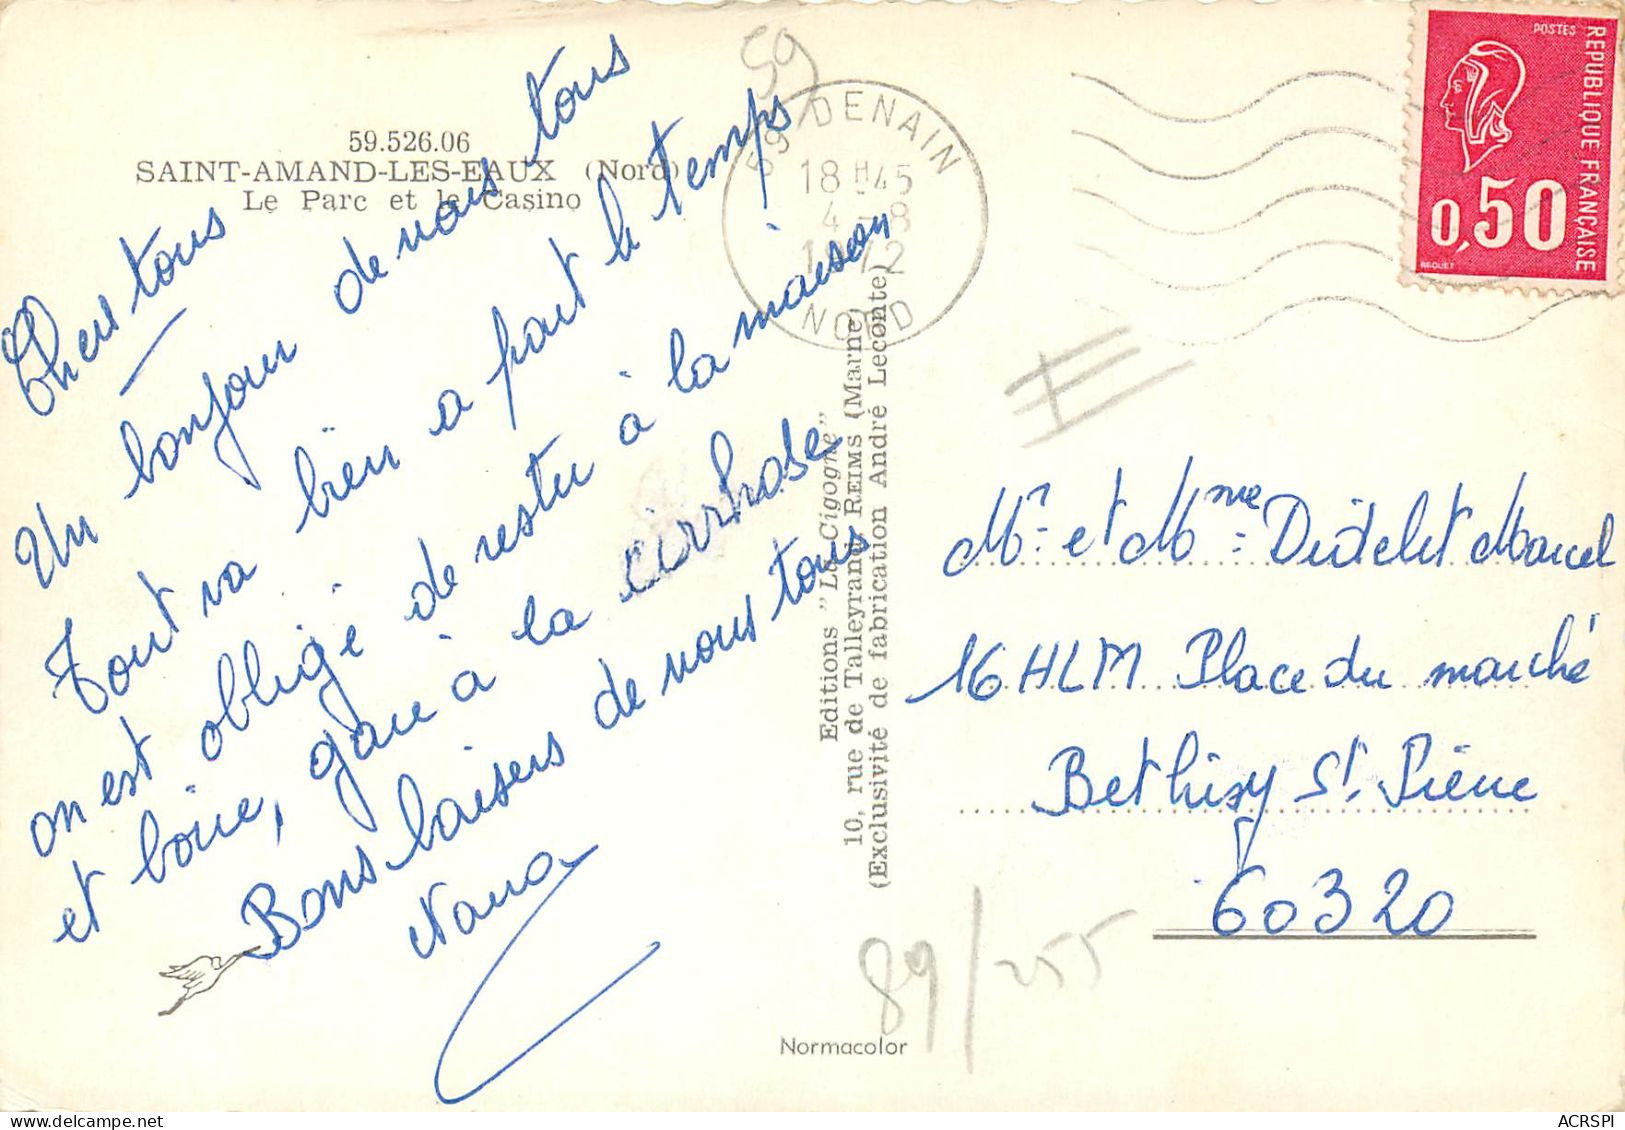 59.526.06
SAINT-AMAND-LES-EAUX (Nord)
Le Parc et le Casino
Chers tous
Un bonjour de nous tous
Tout va bien a part le temps
on est obligé de rester à la maison
et boire, gare à la cirrhose
Bons baisers de nous tous
Nana
Editions "La Cigogne"
10, rue de Talleyrand REIMS (Marne)
(Exclusivité de fabrication André Leconte)
Normacolor
59
59 DENAIN
18 H 45
4 - 8
1972
NORD
POSTES
REPUBLIQUE FRANÇAISE
0,50
BEQUET
Mr et Mme Marcel
16 HLM Place du marché
Bethisy St Pierre
60320
89/255
ACRSPI